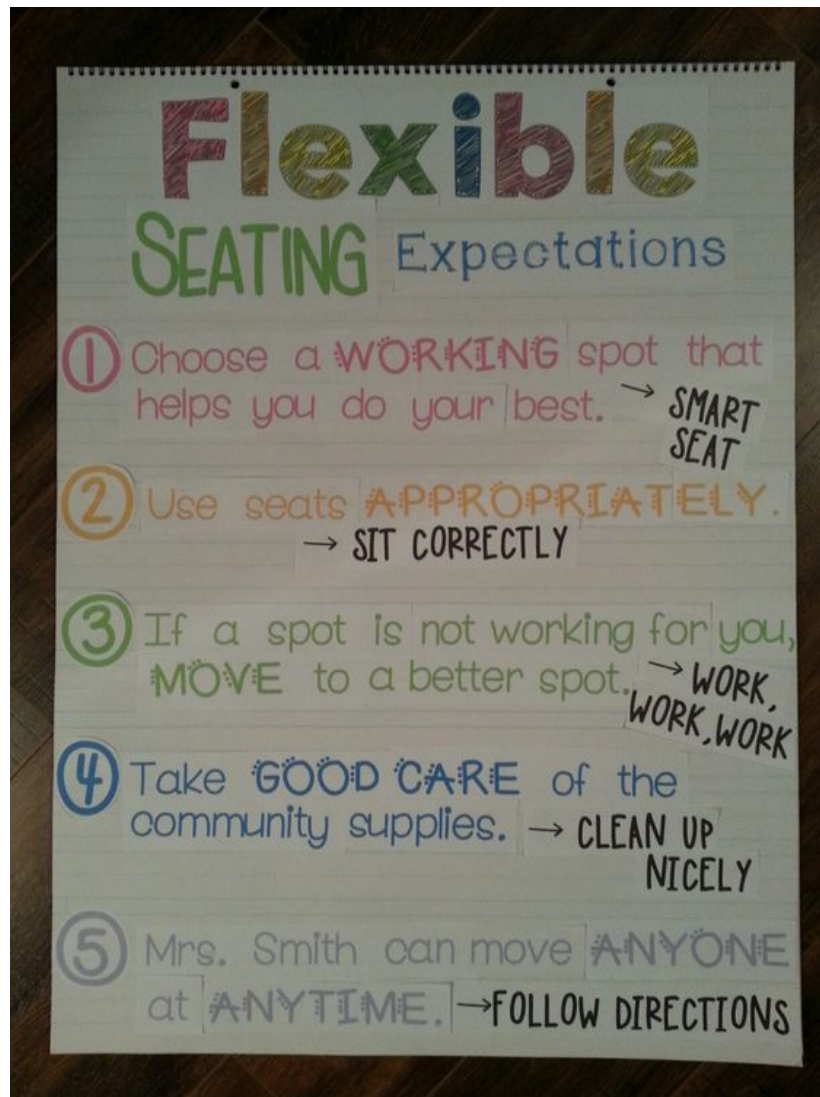 Flexible
SEATING Expectations
① Choose a WORKING spot that
helps you do your best. → SMART
SEAT
② Use seats APPROPRIATELY.
→ SIT CORRECTLY
③ If a spot is not working for you,
MOVE to a better spot. → WORK,
WORK, WORK
④ Take GOOD CARE of the
community supplies. → CLEAN UP
NICELY
⑤ Mrs. Smith can move ANYONE
at ANYTIME. → FOLLOW DIRECTIONS